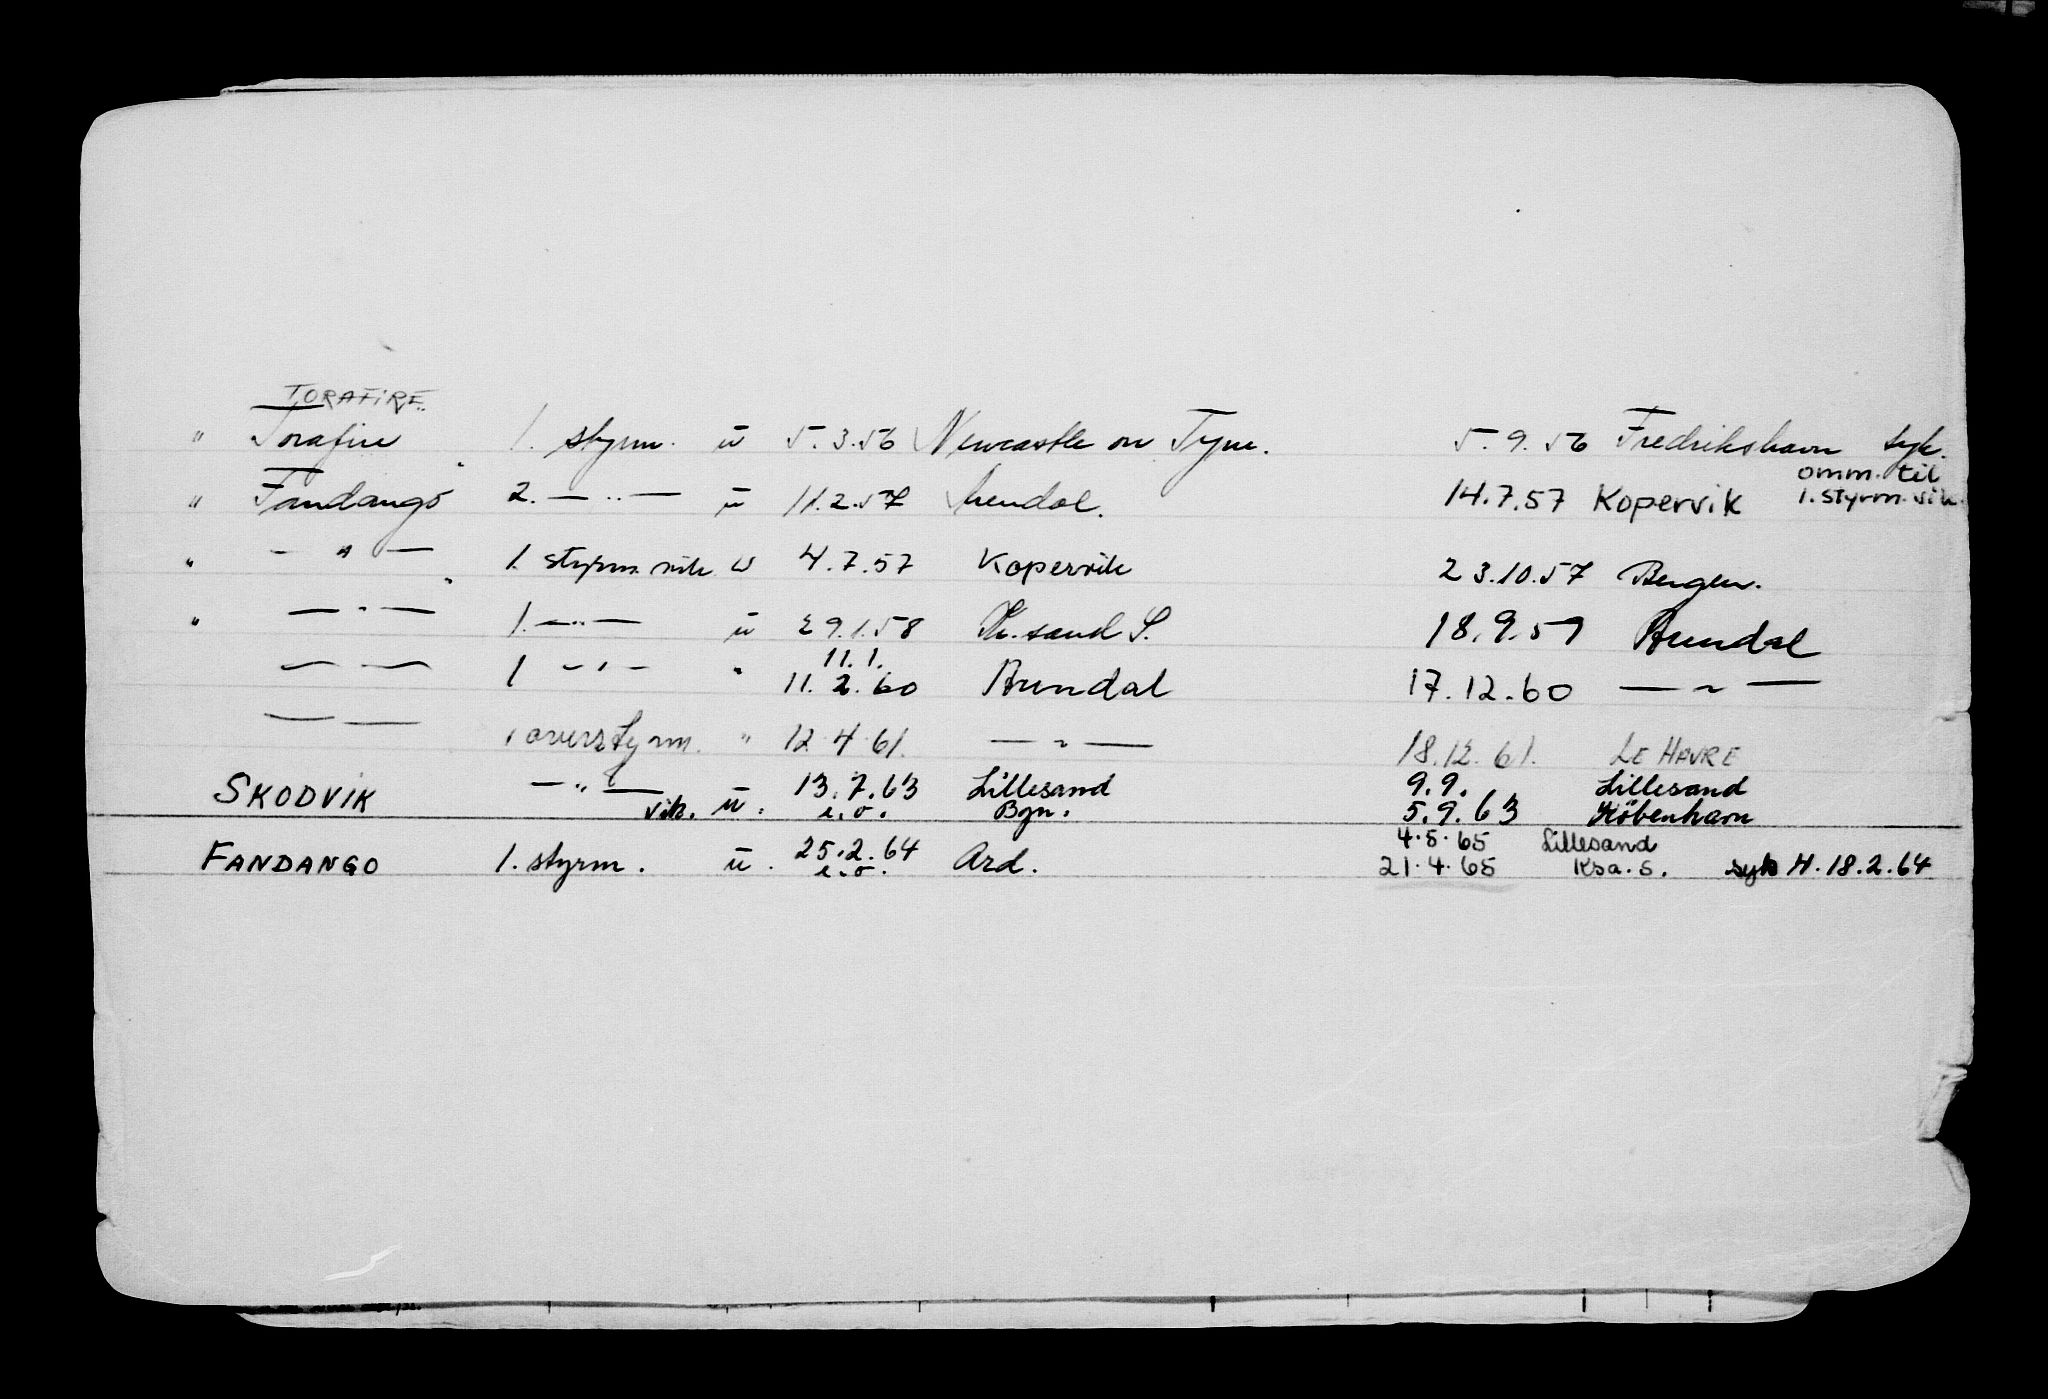 TORAFIRE
" Torafire 1. styrm. ū 5.3.56 Newcastle on Tyne. 5.9.56 Fredrikshavn syk.
" Fandango 2. — " — ū 11.2.57 Arendal. 14.7.57 Kopervik omm. til 1. styrm. vik.
" — " — 1. styrm. vik. u 4.7.57 Kopervik 23.10.57 Bergen.
" — " — 1. — " — ū 29.1.58 Kr.sand S. 18.9.59 Arendal
— — 1 — " — " 11.1. 11.2.60 Arendal 17.12.60 — " —
— — 1 overstyrm. " 12.4.61. — " — 18.12.61. LE HAVRE
SKODVIK — " — vik. ū. 13.7.63 e.o. Lillesand Bgn. 9.9. 5.9.63 Lillesand København
FANDANGO 1. styrm. ū. 25.2.64 e.o. Ard. 4.5.65 Lillesand 21.4.65 Ksa.S. syk H.18.2.64